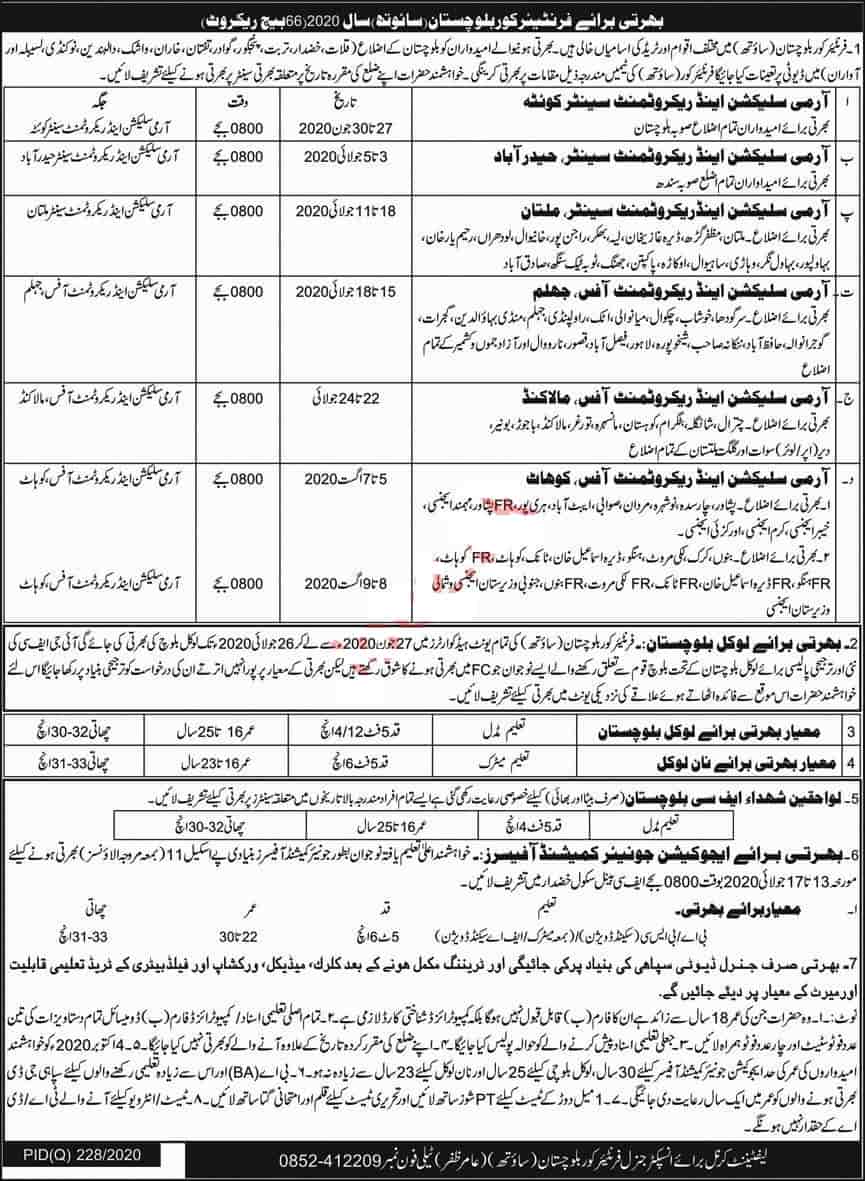 بھرتی برائے فرنٹیئر کور بلوچستان (ساؤتھ) سال 2020 (66 بیچ ریکروٹ)
1۔ فرنٹیئر کور بلوچستان (ساؤتھ) میں مختلف اقوام اور ٹریڈ کی اسامیاں خالی ہیں۔ بھرتی ہونیوالے امیدواران کو بلوچستان کے اضلاع (قلات، خضدار، تربت، پنجگور، گوادر، تفتان، خاران، واشک، دالبندین، نوکنڈی، لسبیلہ اور
آواران) میں ڈیوٹی پر تعینات کیا جائیگا فرنٹیئر کور (ساؤتھ) کی ٹیمیں مندرجہ ذیل مقامات پر بھرتی کرینگی۔ خواہشمند حضرات اپنے ضلع کی مقررہ تاریخ پر متعلقہ بھرتی سینٹر پر بھرتی ہونے کیلئے تشریف لائیں۔
ا آرمی سلیکشن اینڈ ریکروٹمنٹ سینٹر کوئٹہ تاریخ وقت جگہ
بھرتی برائے امیدواران تمام اضلاع صوبہ بلوچستان 27 تا 30 جون 2020 0800 بجے آرمی سلیکشن اینڈ ریکروٹمنٹ سینٹر کوئٹہ
ب۔ آرمی سلیکشن اینڈ ریکروٹمنٹ سینٹر، حیدر آباد 3 تا 5 جولائی 2020 0800 بجے آرمی سلیکشن اینڈ ریکروٹمنٹ سینٹر حیدر آباد
بھرتی برائے امیدواران تمام اضلع صوبہ سندھ
پ آرمی سلیکشن اینڈ ریکروٹمنٹ سینٹر، ملتان 18 تا 11 جولائی 2020 0800 بجے آرمی سلیکشن اینڈ ریکروٹمنٹ سینٹر ملتان
بھرتی برائے اضلاع۔ ملتان، مظفر گڑھ، ڈیرہ غازیخان، لیہ، بھکر، راجن پور، خانیوال، لودھراں، رحیم یار خان،
بہاولپور، بہاول نگر، وہاڑی، ساہیوال، اوکاڑہ، پاکپتن، جھنگ، ٹوبہ ٹیک سنگھ، صادق آباد
ت۔ آرمی سلیکشن اینڈ ریکروٹمنٹ آفس، جھلم 15 تا 18 جولائی 2020 0800 بجے آرمی سلیکشن اینڈ ریکروٹمنٹ آفس، جہلم
بھرتی برائے اضلاع۔ سرگودھا، خوشاب، چکوال، میانوالی، اٹک، راولپنڈی، جہلم، منڈی بہاؤالدین، گجرات،
گوجرانوالہ، حافظ آباد، ننکانہ صاحب، شیخوپورہ، لاہور، فیصل آباد، قصور، نارووال اور آزاد جموں و کشمیر کے تمام
اضلاع
ج۔ آرمی سلیکشن اینڈ ریکروٹمنٹ آفس، مالاکنڈ 22 تا 24 جولائی 0800 بجے آرمی سلیکشن اینڈ ریکروٹمنٹ آفس، مالاکنڈ
بھرتی برائے اضلاع۔ چترال، شانگلہ، بٹگرام، کوہستان، مانسہرہ، تورغر، مالاکنڈ، باجوڑ، بونیر،
دیر (اپر/لوئر) سوات اور گلگت بلتستان کے تمام اضلاع
د۔ آرمی سلیکشن اینڈ ریکروٹمنٹ آفس، کوھاٹ 5 تا 7 اگست 2020 0800 بجے آرمی سلیکشن اینڈ ریکروٹمنٹ آفس، کوہاٹ
۱۔ بھرتی برائے اضلاع۔ پشاور، چارسدہ، نوشہرہ، مردان، صوابی، ایبٹ آباد، ہری پور، FR پشاور، مہمند ایجنسی،
خیبر ایجنسی، کرم ایجنسی، اورکزئی ایجنسی۔
۲۔ بھرتی برائے اضلاع۔ بنوں، کرک، لکی مروٹ، ہنگو، ڈیرہ اسماعیل خان، ٹانک، کوہاٹ، FR کوہاٹ،
FR ہنگو، FR ڈیرہ اسماعیل خان، FR ٹانک، FR لکی مروت، FR بنوں، جنوبی وزیرستان ایجنسی و شمالی 8 تا 9 اگست 2020 0800 بجے آرمی سلیکشن اینڈ ریکروٹمنٹ آفس، کوہاٹ
وزیرستان ایجنسی
2۔ بھرتی برائے لوکل بلوچستان:۔ فرنٹیئر کور بلوچستان (ساؤتھ) کی تمام یونٹ ہیڈ کوارٹرز میں 27 جون 2020 سے لے کر 26 جولائی 2020 تک لوکل بلوچ کی بھرتی کی جائے گی آئی جی ایف سی کی
نئی اور ترجیحی پالیسی برائے لوکل بلوچستان کے تحت بلوچ قوم سے تعلق رکھنے والے ایسے نوجوان جو FC میں بھرتی ہونے کا شوق رکھتے ہیں لیکن بھرتی کے معیار پر پورا نہیں اترتے ان کی درخواست کو ترجیحی بنیاد پر رکھا جائیگا اس لئے
خواہشمند حضرات اس موقع سے فائدہ اٹھاتے ہوئے علاقے کی نزدیکی یونٹ میں بھرتی کیلئے تشریف لائیں۔
3 معیار بھرتی برائے لوکل بلوچستان تعلیم مڈل قد 5 فٹ 4/12 انچ عمر 16 تا 25 سال چھاتی 32-30 انچ
4 معیار بھرتی برائے نان لوکل تعلیم میٹرک قد 5 فٹ 6 انچ عمر 16 تا 23 سال چھاتی 33-31 انچ
5۔ لواحقین شھداء ایف سی بلوچستان (صرف بیٹا اور بھائی) کیلئے خصوصی رعایت رکھی گئی ہے ایسے تمام افراد مندرجہ بالا تاریخوں میں متعلقہ سینٹرز پر بھرتی کیلئے تشریف لائیں۔
تعلیم مڈل قد 5 فٹ 4 انچ عمر 16 تا 25 سال چھاتی 32-30 انچ
6۔ بھرتی برائے ایجوکیشن جونیئر کمیشنڈ آفیسرز:۔ خواہشمند اعلیٰ تعلیم یافتہ نوجوان بطور جونیئر کمیشنڈ آفیسرز بنیادی پے اسکیل 11 (بمعہ مروجہ الاؤنسز) بھرتی ہونے کیلئے
مورخہ 13 تا 17 جولائی 2020 بوقت 0800 بجے ایف سی پبلک سکول خضدار میں تشریف لائیں۔
ا۔ معیار برائے بھرتی۔ تعلیم قد عمر چھاتی
بی اے/بی ایس سی (سیکنڈ ڈویژن)/(بمعہ میٹرک/ایف اے سیکنڈ ڈویژن) 5 فٹ 6 انچ 22 تا 30 33-31 انچ
7۔ بھرتی صرف جنرل ڈیوٹی سپاھی کی بنیاد پر کی جائیگی اور ٹریننگ مکمل ھونے کے بعد کلرک، میڈیکل، ورکشاپ اور فیلڈ بیٹری کے ٹریڈ تعلیمی قابلیت
اور میرٹ کے معیار پر دیئے جائیں گے۔
نوٹ:۔ ۱۔ وہ حضرات جن کی عمر 18 سال سے زائد ہے ان کا فارم (ب) قابل قبول نہیں ہوگا بلکہ کمپیوٹرائزڈ شناختی کارڈ لازمی ہے۔ ۲۔ تمام اصلی تعلیمی اسناد/کمپیوٹرائزڈ فارم (ب) ڈومیسائل تمام دستاویزات کی تین
عدد فوٹو سٹیٹ اور چار عدد فوٹو ہمراہ لائیں۔ ۳۔ جعلی تعلیمی اسناد پیش کرنے والے کو حوالہ پولیس کیا جائیگا۔ ۴۔ اپنے ضلع کی مقرر کردہ تاریخ کے علاوہ آنے والے کو بھرتی نہیں کیا جائیگا۔ ۵۔ 4 اکتوبر 2020 کو خواہشمند
امیدواروں کی عمر کی حد ایجوکیشن جونیئر کمیشنڈ آفیسر کیلئے 30 سال، لوکل بلوچی کیلئے 25 سال اور نان لوکل کیلئے 23 سال سے زیادہ نہ ہو۔ ۶۔ بی اے (BA) اور اس سے زیادہ تعلیمی رکھنے والوں کیلئے سپاہی جی ڈی
بھرتی ہونے والوں کو عمر میں ایک سال رعایت دی جائیگی۔ ۷۔ 1 میل دوڑ کے ٹیسٹ کیلئے PT شوز ساتھ لائیں اور تحریری ٹیسٹ کیلئے قلم اور امتحانی گتا ساتھ لائیں۔ ۸۔ ٹیسٹ/انٹرویو کیلئے آنے والے ٹی اے/ڈی
اے کے حقدار نہیں ہونگے۔
لیفٹیننٹ کرنل برائے انسپکٹر جنرل فرنٹیئر کور بلوچستان (ساؤتھ) (عامر ظفر) ٹیلی فون نمبر 0852-412209
PID(Q) 228/2020